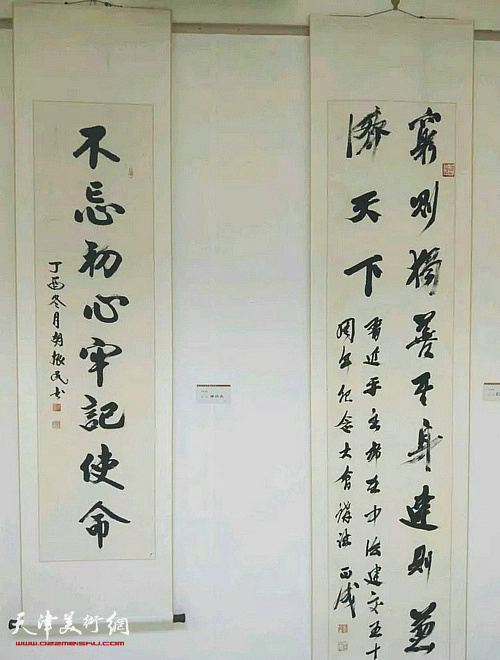 不忘初心牢记使命
丁酉冬月胡振民书
窮则獨善其身達则兼
濟天下
習近平主席在中法建交五十
周年纪念大會講話
天津美術網
www.022meishu.com